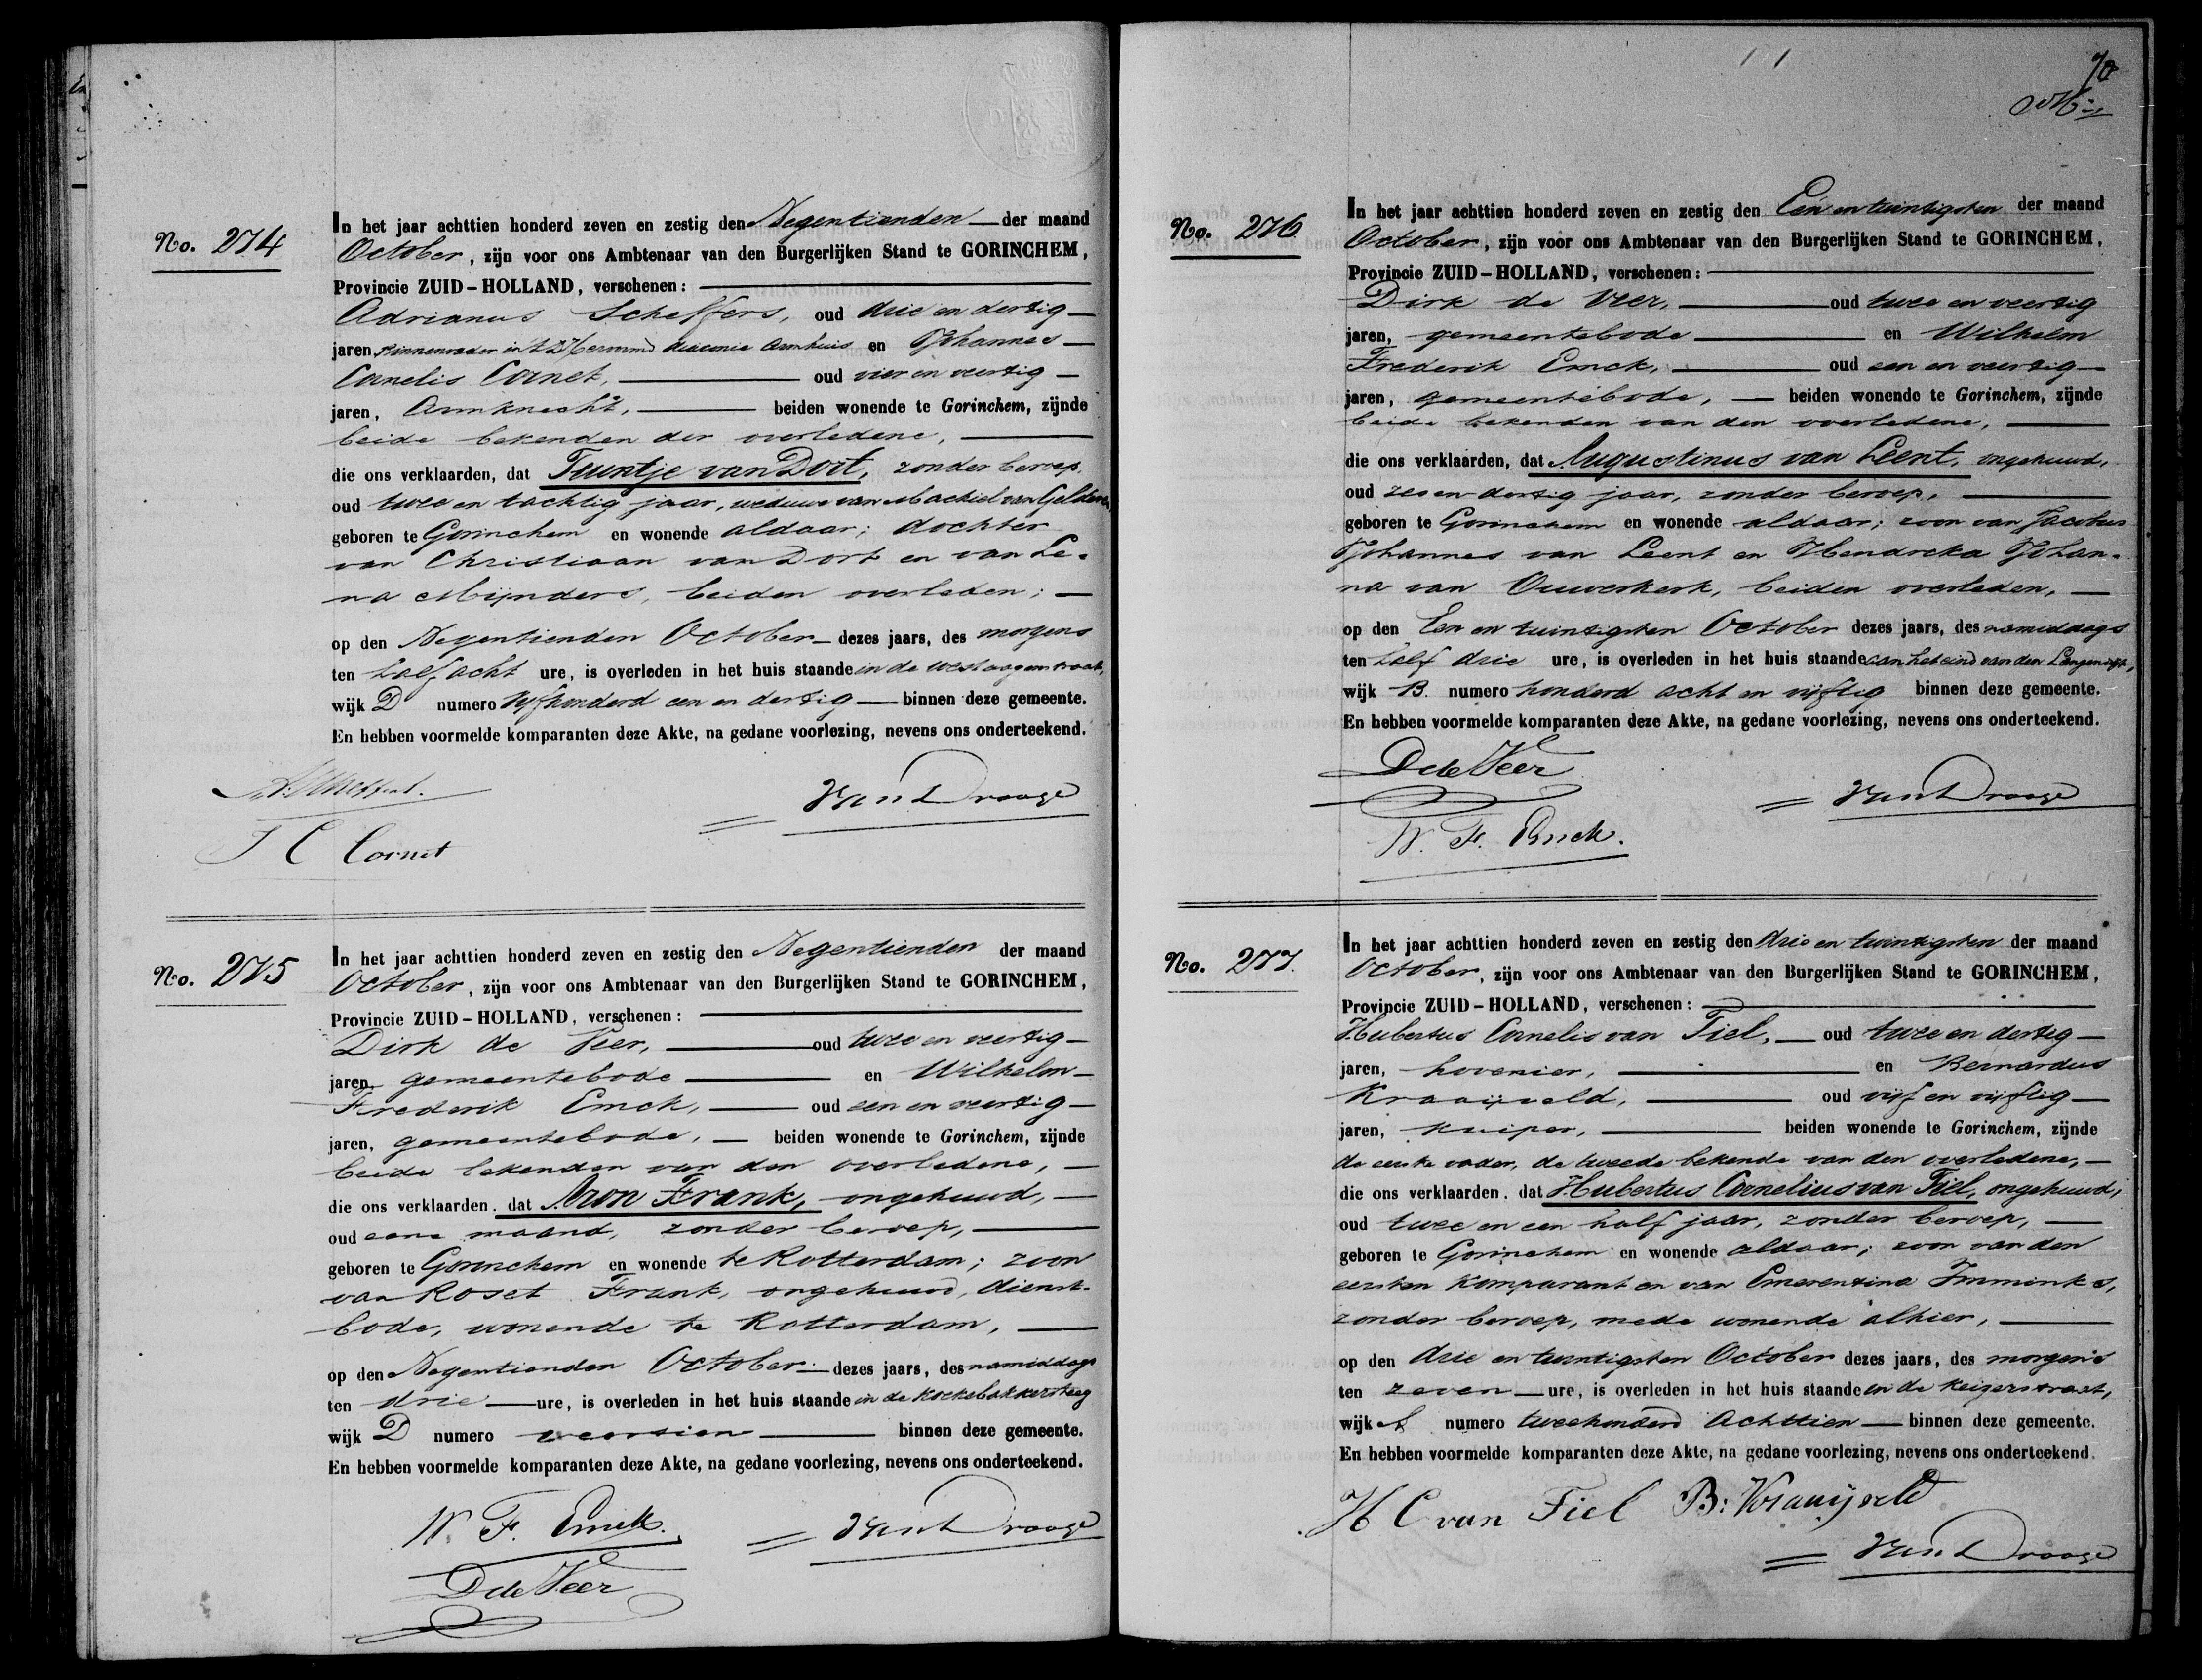 No. 274
In het jaar achttien honderd zeven en zestig den Negentienden der maand
October, zijn voor ons Ambtenaar van den Burgerlijken Stand te GORINCHEM,
Provincie ZUID-HOLLAND, verschenen:
Adrianus Scheffers, oud drie en dertig
jaren, Binnenvader in 't Hervormd diaconie Armhuis en Johannes
Cornelis Cornet, oud vier en veertig
jaren, Armknecht, beiden wonende te Gorinchem, zijnde
beide bekenden der overledene,
die ons verklaarden, dat Teuntje van Dort, zonder beroep,
oud twee en tachtig jaar, weduwe van Machiel van Gelderen,
geboren te Gorinchem en wonende aldaar; dochter
van Christiaan van Dort en van Le-
na Mijnders, beiden overleden;
op den Negentienden October dezes jaars, des morgens
ten half acht ure, is overleden in het huis staande in de
wijk D numero vijfhonderd een en dertig binnen deze gemeente.
En hebben voormelde komparanten deze Akte, na gedane voorlezing, nevens ons onderteekend.
A. Scheffers.
J C Cornet
No. 275
In het jaar achttien honderd zeven en zestig den Negentienden der maand
October, zijn voor ons Ambtenaar van den Burgerlijken Stand te GORINCHEM,
Provincie ZUID-HOLLAND, verschenen:
Dirk de Veer, oud twee en veertig
jaren, gemeentebode en Wilhelm
Frederik Emck, oud een en veertig
jaren, gemeentebode, beiden wonende te Gorinchem, zijnde
beide bekenden van den overledene,
die ons verklaarden, dat Aron Frank, ongehuwd,
oud eene maand, zonder beroep,
geboren te Gorinchem en wonende te Rotterdam; zoon
van Roset Frank, ongehuwd, dienst-
bode, wonende te Rotterdam,
op den Negentienden October dezes jaars, des namiddags
ten drie ure, is overleden in het huis staande in de Koekebakkersteeg
wijk D numero veertien binnen deze gemeente.
En hebben voormelde komparanten deze Akte, na gedane voorlezing, nevens ons onderteekend.
W. F. Emck.
D de Veer
70
No. 276
In het jaar achttien honderd zeven en zestig den Eén en twintigsten der maand
October, zijn voor ons Ambtenaar van den Burgerlijken Stand te GORINCHEM,
Provincie ZUID-HOLLAND, verschenen:
Dirk de Veer, oud twee en veertig
jaren, gemeentebode en Wilhelm
Frederik Emck, oud een en veertig
jaren, gemeentebode, beiden wonende te Gorinchem, zijnde
beide bekenden van den overledene,
die ons verklaarden, dat Augustinus van Leent, ongehuwd,
oud zes en dertig jaar, zonder beroep,
geboren te Gorinchem en wonende aldaar; zoon van Jacobus
Johannes van Leent en Hendrika Johan-
na van Ouwerkerk, beiden overleden,
op den Een en twintigsten October dezes jaars, des namiddags
ten half drie ure, is overleden in het huis staande aan het eind van den Langendijk,
wijk B. numero honderd acht en vijftig binnen deze gemeente.
En hebben voormelde komparanten deze Akte, na gedane voorlezing, nevens ons onderteekend.
D de Veer
W. F. Emck.
No. 277.
In het jaar achttien honderd zeven en zestig den drie en twintigsten der maand
October, zijn voor ons Ambtenaar van den Burgerlijken Stand te GORINCHEM,
Provincie ZUID-HOLLAND, verschenen:
Hubertus Cornelis van Tiel, oud twee en dertig
jaren, hovenier, en Bernardus
Kraaijveld, oud vijf en vijftig
jaren, kuiper, beiden wonende te Gorinchem, zijnde
de eerste vader, de tweede bekende van den overledene,
die ons verklaarden, dat Hubertus Cornelius van Tiel, ongehuwd,
oud twee en een half jaar, zonder beroep,
geboren te Gorinchem en wonende aldaar; zoon van den
eersten Komparant en van Emerentina Immink,
zonder beroep, mede wonende alhier,
op den drie en twintigsten October dezes jaars, des morgens
ten zeven ure, is overleden in het huis staande in de Keizerstraat,
wijk numero tweehonderd Achttien binnen deze gemeente.
En hebben voormelde komparanten deze Akte, na gedane voorlezing, nevens ons onderteekend.
H C van Tiel B: Kraaijveld